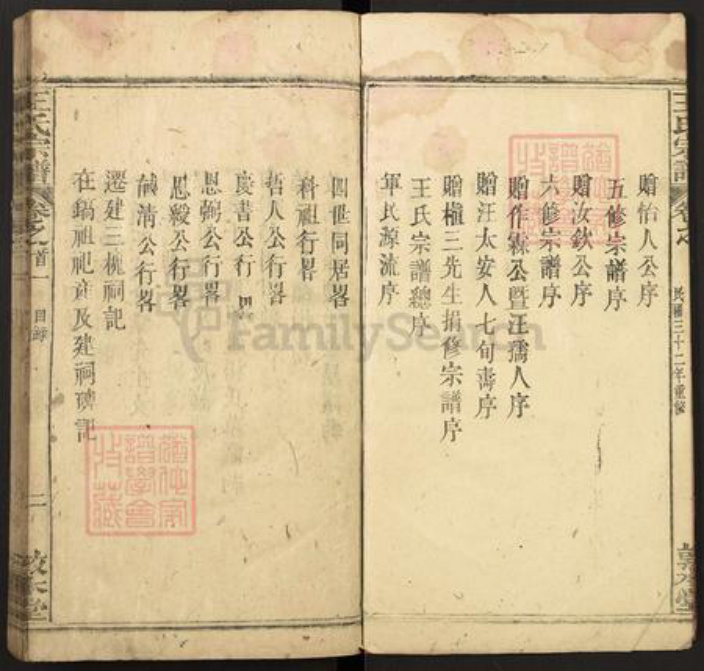 王氏宗譜
民國三十二年重修
敦本堂
贈怡人公序
五修宗譜序
贈汝欽公序
六修宗譜序
贈作霖公暨汪孺人序
贈汪太安人七旬壽序
贈植三先生捐修宗譜序
王氏宗譜總序
軍民源流序
四世同居畧
科祖行畧
哲人公行畧
慶書公行畧
恩弼公行畧
恩綬公行畧
馘清公行畧
遷建三槐祠記
在鎬祖祀產及建祠碑記
王氏宗譜
卷之首一
目錄
二
敦本堂
FamilySearch